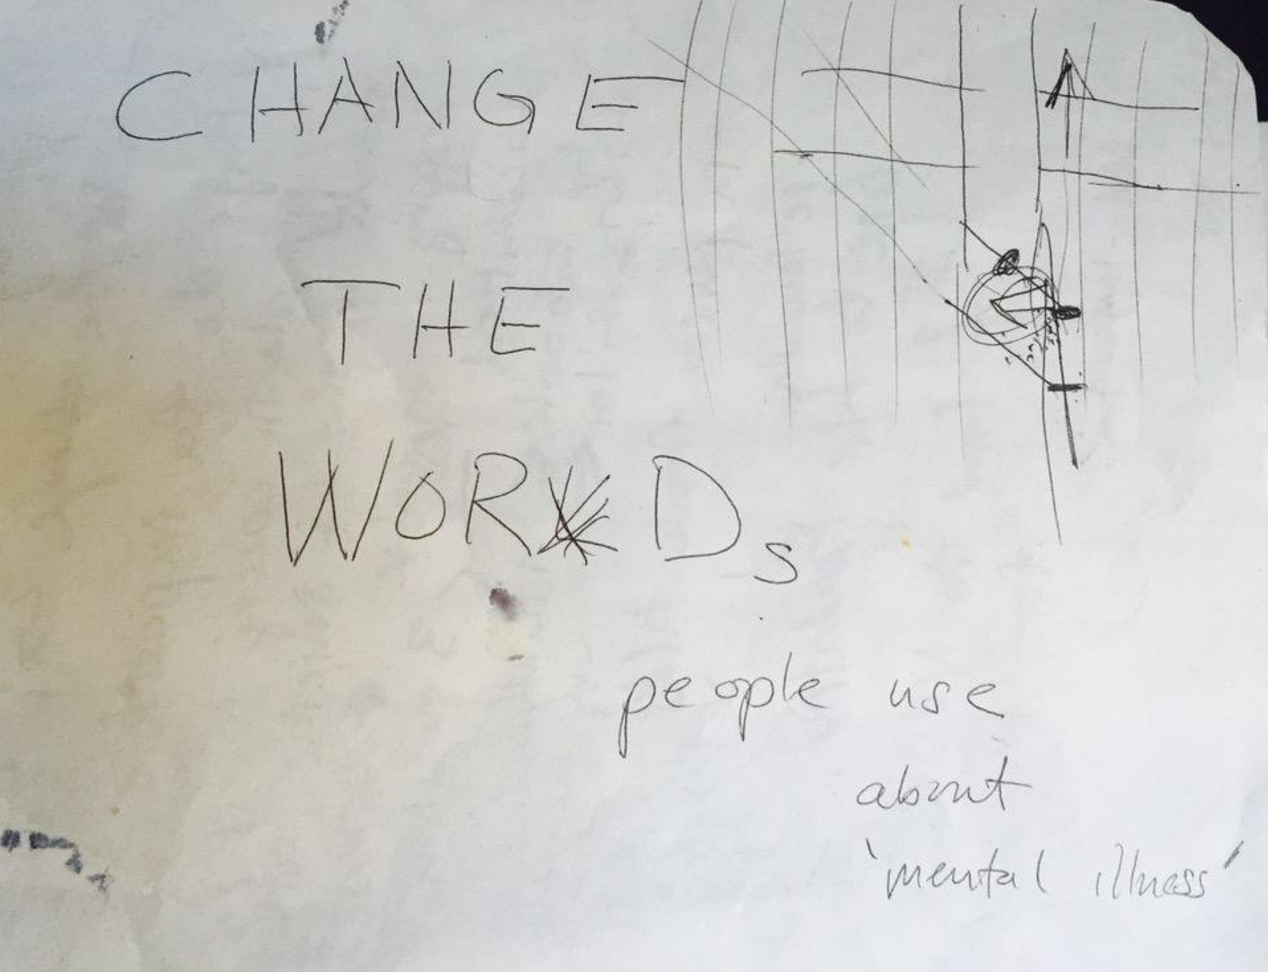 CHANGE
THE
WORDs
people use
about
'mental illness'